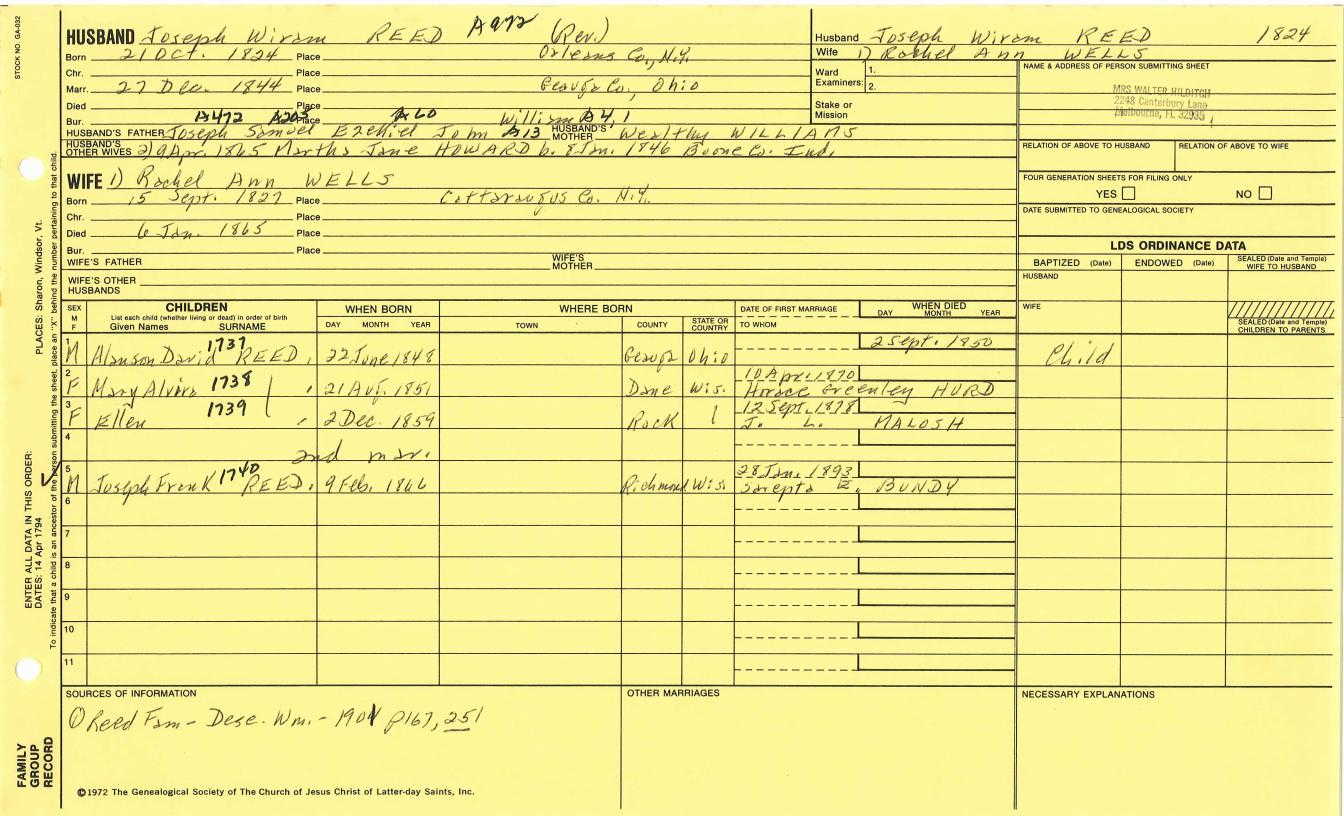 STOCK NO. GA-032
HUSBAND Joseph Wiram REED A972 (Rev.)
Born 21 Oct. 1824 Place Orleans Co., N.Y.
Chr. Place
Marr. 27 Dec. 1844 Place Geauga Co., Ohio
Died Place
Bur. Place
A472 A203 A60 William A4, 1
HUSBAND'S FATHER Joseph Samuel Ezekiel John A13 HUSBAND'S MOTHER Wealthy WILLIAMS
HUSBAND'S OTHER WIVES 2) 9 Apr. 1865 Martha Jane HOWARD b. 8 Jan. 1846 Boone Co. Ind.
WIFE 1) Rachel Ann WELLS
Born 15 Sept. 1827 Place Cattaraugus Co. N.Y.
Chr. Place
Died 6 Jan. 1865 Place
Bur. Place
WIFE'S FATHER WIFE'S MOTHER
WIFE'S OTHER HUSBANDS
Husband Joseph Wiram REED 1824
Wife 1) Rachel Ann WELLS
Ward Examiners: 1. 2.
Stake or Mission
NAME & ADDRESS OF PERSON SUBMITTING SHEET
MRS WALTER HILDITCH
2248 Canterbury Lane
Melbourne, FL 32935
RELATION OF ABOVE TO HUSBAND RELATION OF ABOVE TO WIFE
FOUR GENERATION SHEETS FOR FILING ONLY
YES NO
DATE SUBMITTED TO GENEALOGICAL SOCIETY
LDS ORDINANCE DATA
BAPTIZED (Date) ENDOWED (Date) SEALED (Date and Temple) WIFE TO HUSBAND
HUSBAND
WIFE
SEALED (Date and Temple) CHILDREN TO PARENTS
SEX M F CHILDREN List each child (whether living or dead) in order of birth Given Names SURNAME WHEN BORN DAY MONTH YEAR WHERE BORN TOWN COUNTY STATE OR COUNTRY DATE OF FIRST MARRIAGE TO WHOM WHEN DIED DAY MONTH YEAR
1 M Alanson David 1737 REED. 22 June 1848 Geauga Ohio 2 Sept. 1850 Child
2 F Mary Alvira 1738 21 Aug. 1851 Dane Wis. 10 Apr. 1870 Horace Greenley HURD
3 F Ellen 1739 2 Dec. 1859 Rock 12 Sept. 1878 J. L. MALOSH
4 2nd mar.
5 M Joseph Frank 1740 REED. 9 Feb. 1866 Richmond Wis. 28 Jan. 1893 Sarepta E. BUNDY
6
7
8
9
10
11
SOURCES OF INFORMATION
① Reed Fam - Desc. Wm. - 1901 p167, 251
OTHER MARRIAGES
NECESSARY EXPLANATIONS
©1972 The Genealogical Society of The Church of Jesus Christ of Latter-day Saints, Inc.
FAMILY GROUP RECORD
ENTER ALL DATA IN THIS ORDER:
DATES: 14 Apr 1794 PLACES: Sharon, Windsor, Vt.
To indicate that a child is an ancestor of the person submitting the sheet, place an "X" behind the number pertaining to that child.